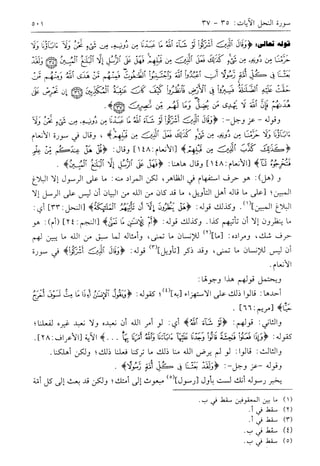 سورة النحل الآيات: ٣٥ - ٣٧
٥٠١
قوله تعالى: ﴿وَقَالَ ٱلَّذِينَ أَشْرَكُوا۟ لَوْ شَآءَ ٱللَّهُ مَا عَبَدْنَا مِن دُونِهِۦ مِن شَىْءٍ نَّحْنُ وَلَآ ءَابَآؤُنَا وَلَا
حَرَّمْنَا مِن دُونِهِۦ مِن شَىْءٍ كَذَٰلِكَ فَعَلَ ٱلَّذِينَ مِن قَبْلِهِمْ فَهَلْ عَلَى ٱلرُّسُلِ إِلَّا ٱلْبَلَٰغُ ٱلْمُبِينُ ﴿٣٥﴾ وَلَقَدْ
بَعَثْنَا فِى كُلِّ أُمَّةٍ رَّسُولًا أَنِ ٱعْبُدُوا۟ ٱللَّهَ وَٱجْتَنِبُوا۟ ٱلطَّٰغُوتَ فَمِنْهُم مَّنْ هَدَى ٱللَّهُ وَمِنْهُم مَّنْ
حَقَّتْ عَلَيْهِ ٱلضَّلَٰلَةُ فَسِيرُوا۟ فِى ٱلْأَرْضِ فَٱنظُرُوا۟ كَيْفَ كَانَ عَٰقِبَةُ ٱلْمُكَذِّبِينَ ﴿٣٦﴾ إِن تَحْرِصْ عَلَىٰ
هُدَىٰهُمْ فَإِنَّ ٱللَّهَ لَا يَهْدِى مَن يُضِلُّ وَمَا لَهُم مِّن نَّٰصِرِينَ ﴿٣٧﴾﴾.
وقوله - عز وجل -: ﴿وَقَالَ ٱلَّذِينَ أَشْرَكُوا۟ لَوْ شَآءَ ٱللَّهُ مَا عَبَدْنَا مِن دُونِهِۦ مِن شَىْءٍ نَّحْنُ وَلَآ
ءَابَآؤُنَا وَلَا حَرَّمْنَا مِن دُونِهِۦ مِن شَىْءٍ كَذَٰلِكَ فَعَلَ ٱلَّذِينَ مِن قَبْلِهِمْ﴾، وقال في سورة الأنعام
﴿كَذَٰلِكَ كَذَّبَ ٱلَّذِينَ مِن قَبْلِهِمْ﴾ [الأنعام: ١٤٨] وقال: ﴿قُلْ هَلْ عِندَكُم مِّنْ عِلْمٍ
فَتُخْرِجُوهُ لَنَآ﴾ [الأنعام: ١٤٨] وقال هاهنا: ﴿فَهَلْ عَلَى ٱلرُّسُلِ إِلَّا ٱلْبَلَٰغُ ٱلْمُبِينُ﴾.
و (هل): هو حرف استفهام في الظاهر، لكن المراد منه: ما على الرسول إلا البلاغ
المبين؛ [على ما قاله أهل التأويل، ما قد كان من الله من البيان أن ليس على الرسل إلا
البلاغ المبين](١)، وكذلك قوله: ﴿هَلْ يَنظُرُونَ إِلَّآ أَن تَأْتِيَهُمُ ٱلْمَلَٰٓئِكَةُ﴾ [النحل: ٣٣] أي:
ما ينظرون إلا أن تأتيهم كذا. وكذلك قوله: ﴿أَمْ لِلْإِنسَٰنِ مَا تَمَنَّىٰ﴾ [النجم: ٢٤] (أم): هو
حرف شك، ومراده: [ما](٢) للإنسان ما تمنى، وأمثاله لما سبق من الله ما يبين لهم
أن ليس للإنسان ما تمنى، وقد ذكر [تأويل](٣) قوله: ﴿وَقَالَ ٱلَّذِينَ أَشْرَكُوا۟﴾ في سورة
الأنعام.
ويحتمل قولهم هذا وجوهًا:
أحدها: قالوا ذلك على الاستهزاء [به](٤)؛ كقوله: ﴿وَيَقُولُ ٱلْإِنسَٰنُ أَءِذَا مَا مِتُّ لَسَوْفَ أُخْرَجُ
حَيًّا﴾ [مريم: ٦٦].
والثاني: قولهم: ﴿لَوْ شَآءَ ٱللَّهُ﴾ أي: لو أمر الله أن نعبده ولا نعبد غيره لفعلنا؛
كقوله: ﴿وَإِذَا فَعَلُوا۟ فَٰحِشَةً قَالُوا۟ وَجَدْنَا عَلَيْهَآ ءَابَآءَنَا وَٱللَّهُ أَمَرَنَا بِهَا ...﴾ الآية [الأعراف: ٢٨].
والثالث: قالوا: لو لم يرض الله منا ذلك ما تركنا فعلنا ذلك؛ ولكن أهلكنا.
وقوله - عز وجل -: ﴿وَلَقَدْ بَعَثْنَا فِى كُلِّ أُمَّةٍ رَّسُولًا﴾.
يخبر رسوله أنك لست بأول [رسول](٥) مبعوث إلى أمتك؛ ولكن قد بعث إلى كل أمة
(١) ما بين المعقوفين سقط في ب.
(٢) سقط في أ.
(٣) سقط في أ.
(٤) سقط في ب.
(٥) سقط في ب.